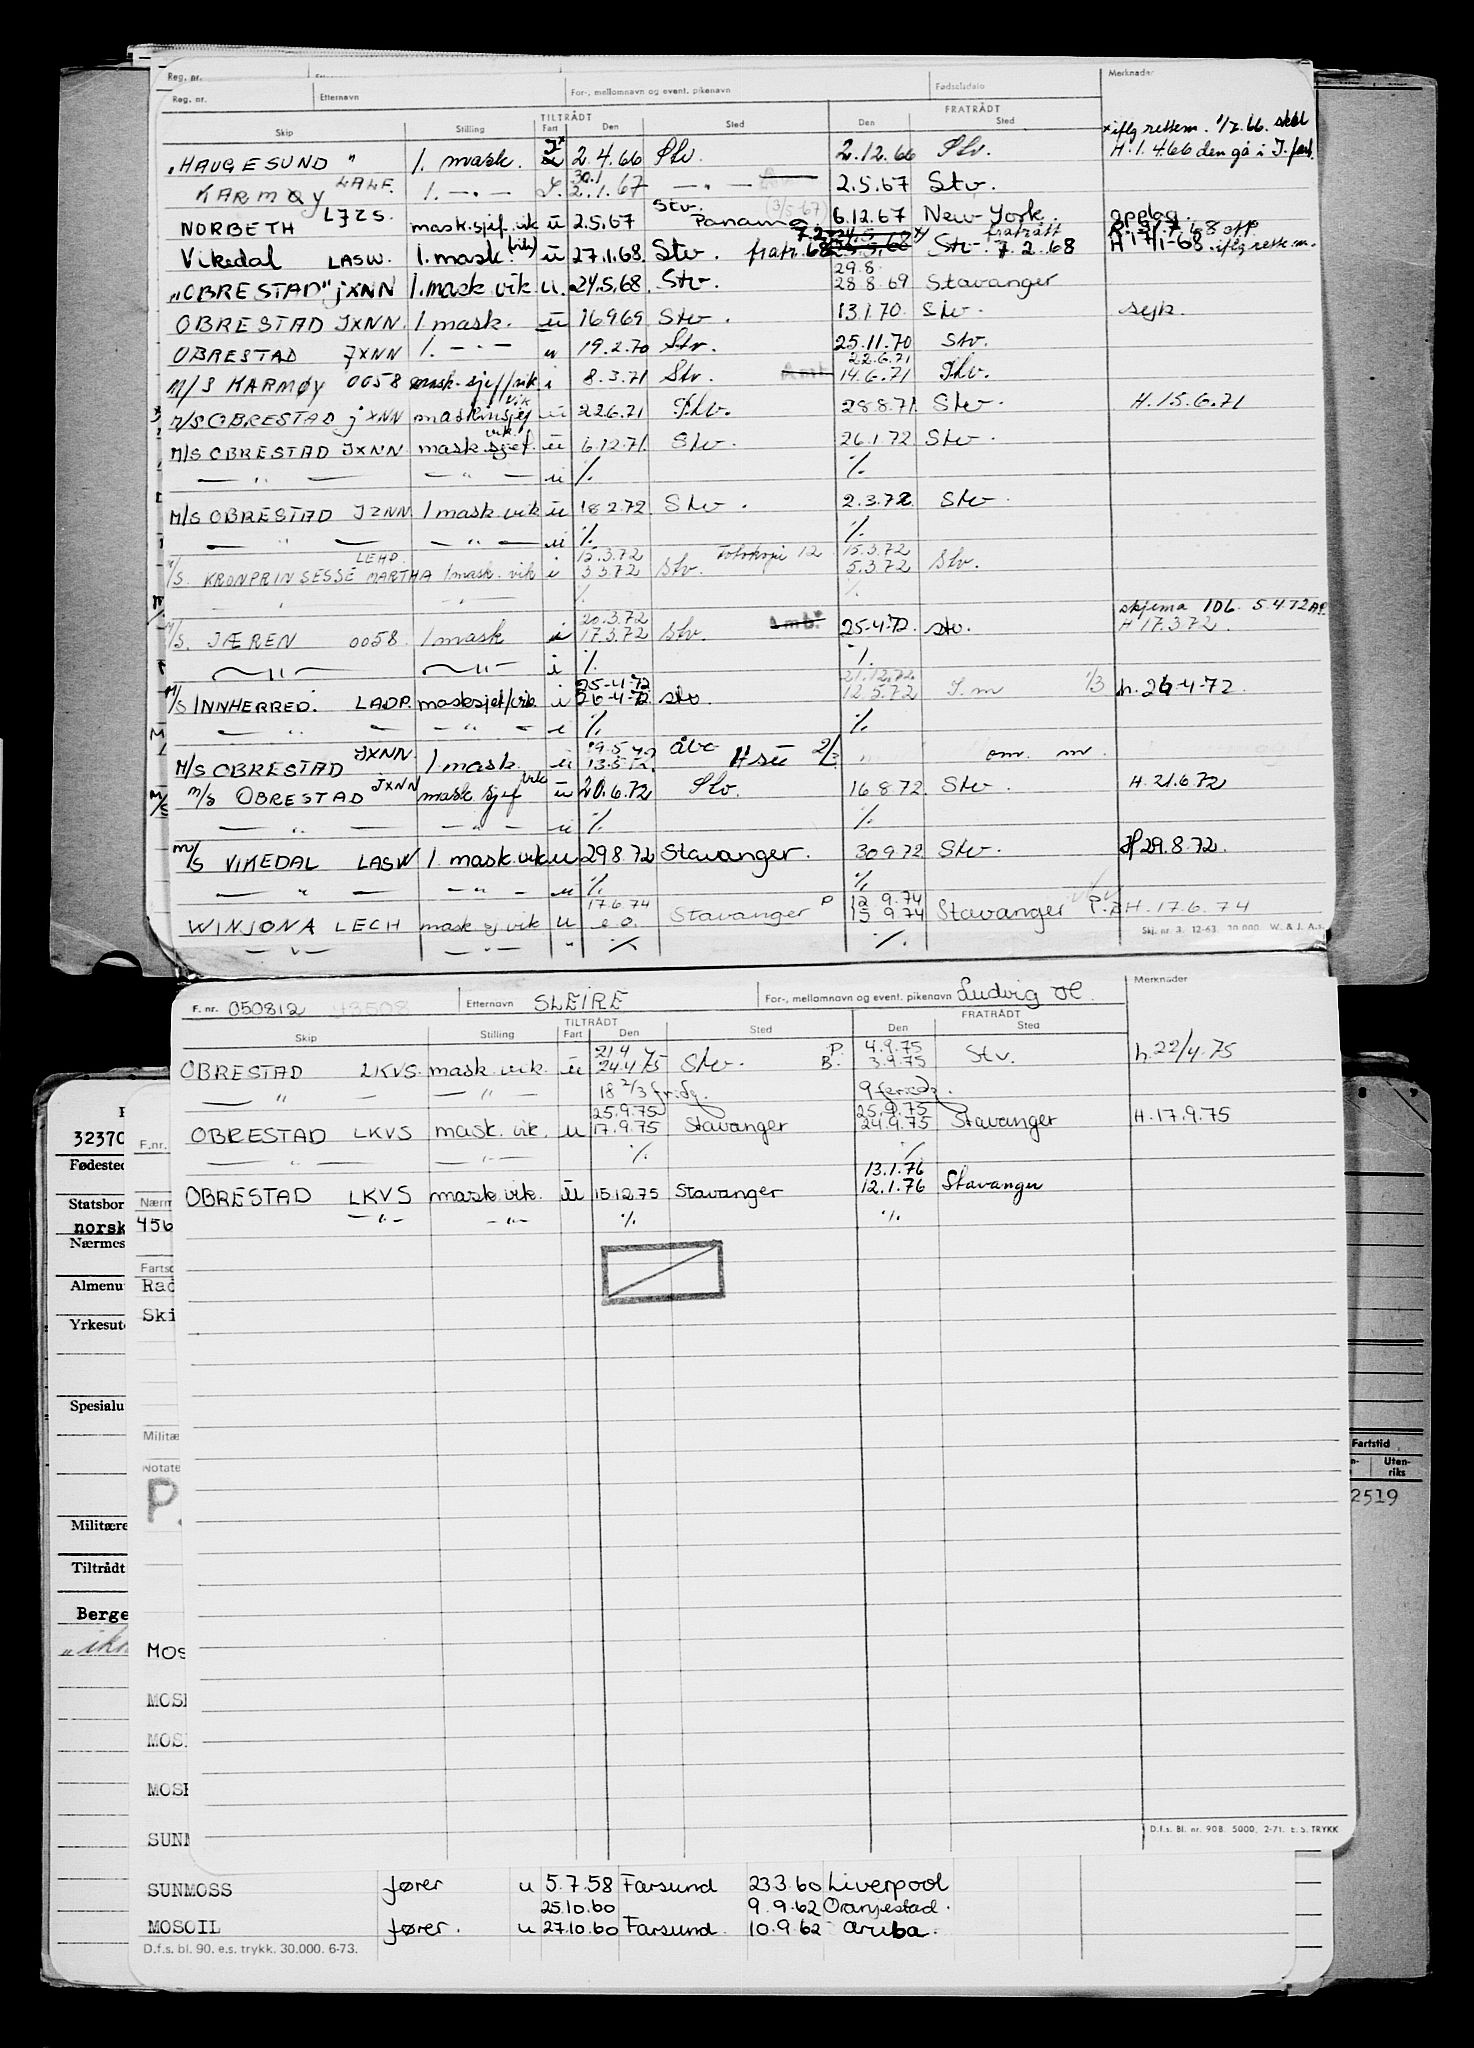 Reg. nr.
Merknader
Reg. nr. Etternavn For-, mellomnavn og event. pikenavn Fødselsdato
TILTRÅDT FRATRÅDT
Skip Stilling Fart Den Sted Den Sted
x iflg rettem. 1/12.66. skal
"HAUGESUND " 1. mask. 2.4.66 Stv. 2.12.66 Stv. H.1.4.66 den gå i I. fart.
30.1
KARMØY LALF. 1. -"- 2.1.67 -"- 2.5.67 Stv.
Stv. (3/5-67)
NORBETH LJZS. mask.sjef.vik u 2.5.67 Panama 6.12.67 New-York. opplag.
fratrått
Vikedal LASW. 1. mask. (vik) u 27.1.68. Stv. fratr. 7.2.68 Stv. 7.2.68 H 17/1-68 iflg rettem.
29.8.
"OBRESTAD" JXNN 1. mask vik u. 24.5.68. Stv. 28 8.69 Stavanger
OBRESTAD JXNN. 1 mask. u 16969 Stv. 13.1.70. Stv. sejk.
OBRESTAD JXNN 1. -"- u 19.2.70 Stv. 25.11.70 Stv.
22.6.71
M/S KARMØY 0058 mask.sjef/vik i 8.3.71 Stv. 14.6.71 Thv.
M/S OBRESTAD JXNN maskinsjef vik u 22.6.71 Thv. 28.8.71. Stv. H.15.6.71
M/S OBRESTAD JXNN mask.sjef. vik. u 6.12.71. Stv. 26.1.72 Stv.
-"- -"- u %. %.
M/S OBRESTAD JZNN 1 mask.vik u 18 2.72 Stv. 2.3.72 Stv.
-"- -"- u %. %.
LEHD 15.3.72 Fotokopi 12 15.3.72
M/S. KRONPRINSESSE MARTHA 1 mask. vik i 3 3 72 Stv. 5.3.72 Stv.
-"- -"- %. %.
20.3.72 skjema 106. 5.4.72 AP.
M/S. JÆREN 0058. 1 mask i 17.3.72 Stv. 25.4.72. stv. H 17.3.72.
-"- -"- i %. %.
25-4-72 21.12.72.
M/S INNHERRED. LADP. masksjef/vik i 26-4-72 stv. 12.5.72 1/3 h. 26-4-72.
-"- -"- i %. %.
M/S OBRESTAD JXNN 1 mask. u 13.5.72. 2/3
M/S OBRESTAD JXNN mask sjef vik u 20.6.72 Stv. 16 8 72 Stv. H. 21.6.72
-"- -"- u %. %.
M/S VIKEDAL LASW 1. mask.vik u 29 8 72 Stavanger. 30 9 72 Stv. H 29.8.72.
-"- -"- u %. %.
17.6.74 P 12 9.74
WINJONA LECH mask sj vik u Stavanger 15 9.74 Stavanger H. 17.6.74
-"- -"- " % %.
Skj. nr. 3. 12-63. 30 000. W. & J. A.s.
Merknader
F. nr. 050812 43508 Etternavn SLEIRE For-, mellomnavn og event. pikenavn Ludvig H.
TILTRÅDT FRATRÅDT
Skip Stilling Fart Den Sted Den Sted
21 4 P. 4.9.75
OBRESTAD LKVS. mask. vik. u 24 4 75 Stv. B. 3.9.75 Stv. h. 22/4.75
-"- -"- 18 2/3 fridg. 9 feriedg.
25.9.75 25.9.75
OBRESTAD LKVS mask. vik. u 17.9.75 Stavanger 24.9.75 Stavanger H. 17.9.75
-"- -"- %. %.
13.1.76
OBRESTAD LKVS mask. vik. u 15.12.75 Stavanger 12.1.76 Stavanger
-"- -"- %. %.
D.f.s. Bl. nr. 90B. 5000, 2-71. E.S. TRYKK
3237
F.nr.
Fødested
Statsbor
Nærm
norsk
456
Nærmes
Fartso
Almenu
Rad
Ski
Yrkesut
Spesialu
Militæ
Fartstid
Uten-
riks
Notate
2519
P.
Militære
Tiltrådt
Berge
MOS
MOSI
MOS
MOSI
SUNM
SUNMOSS fører u 5.7.58 Farsund 23.3.60 Liverpool
25.10.60 9.9.62 Oranjestad.
MOSOIL fører. u 27.10.60 Farsund. 10.9.62 Aruba.
D.f.s. bl. 90. e.s. trykk. 30.000. 6-73.